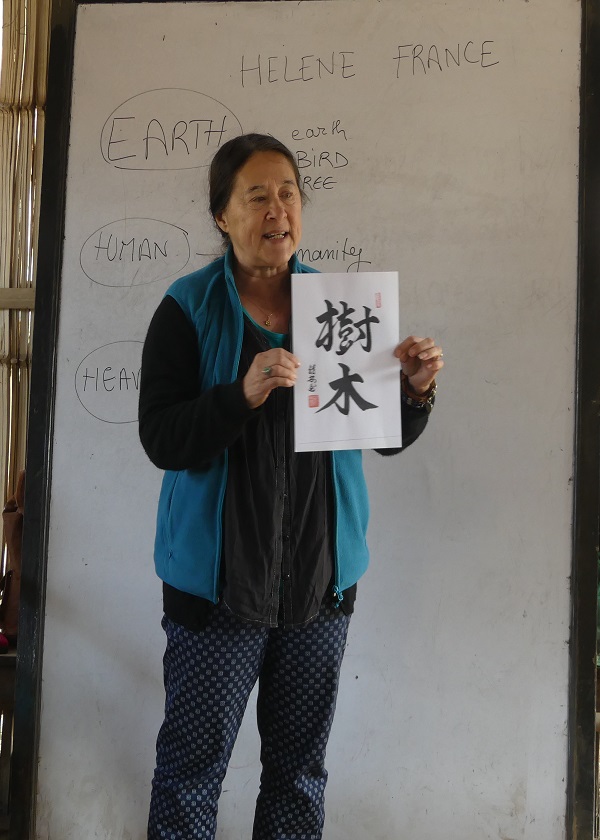 HELENE FRANCE
EARTH
earth
BIRD
REE
HUMAN
manity
HEAV
樹
木